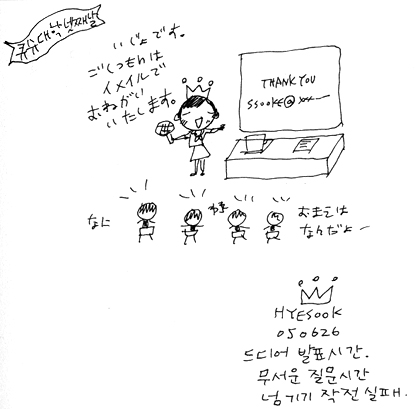 큐슈대 넷째날
いじょです。
ごしつもんは
イメイルで
おねがい
いたします。
THANK YOU
SSOOKE@
なに
おまえは
なんだよー
HYESOOK
050626
드디어 발표시간.
무서운 질문시간
넘기기 작전 실패.